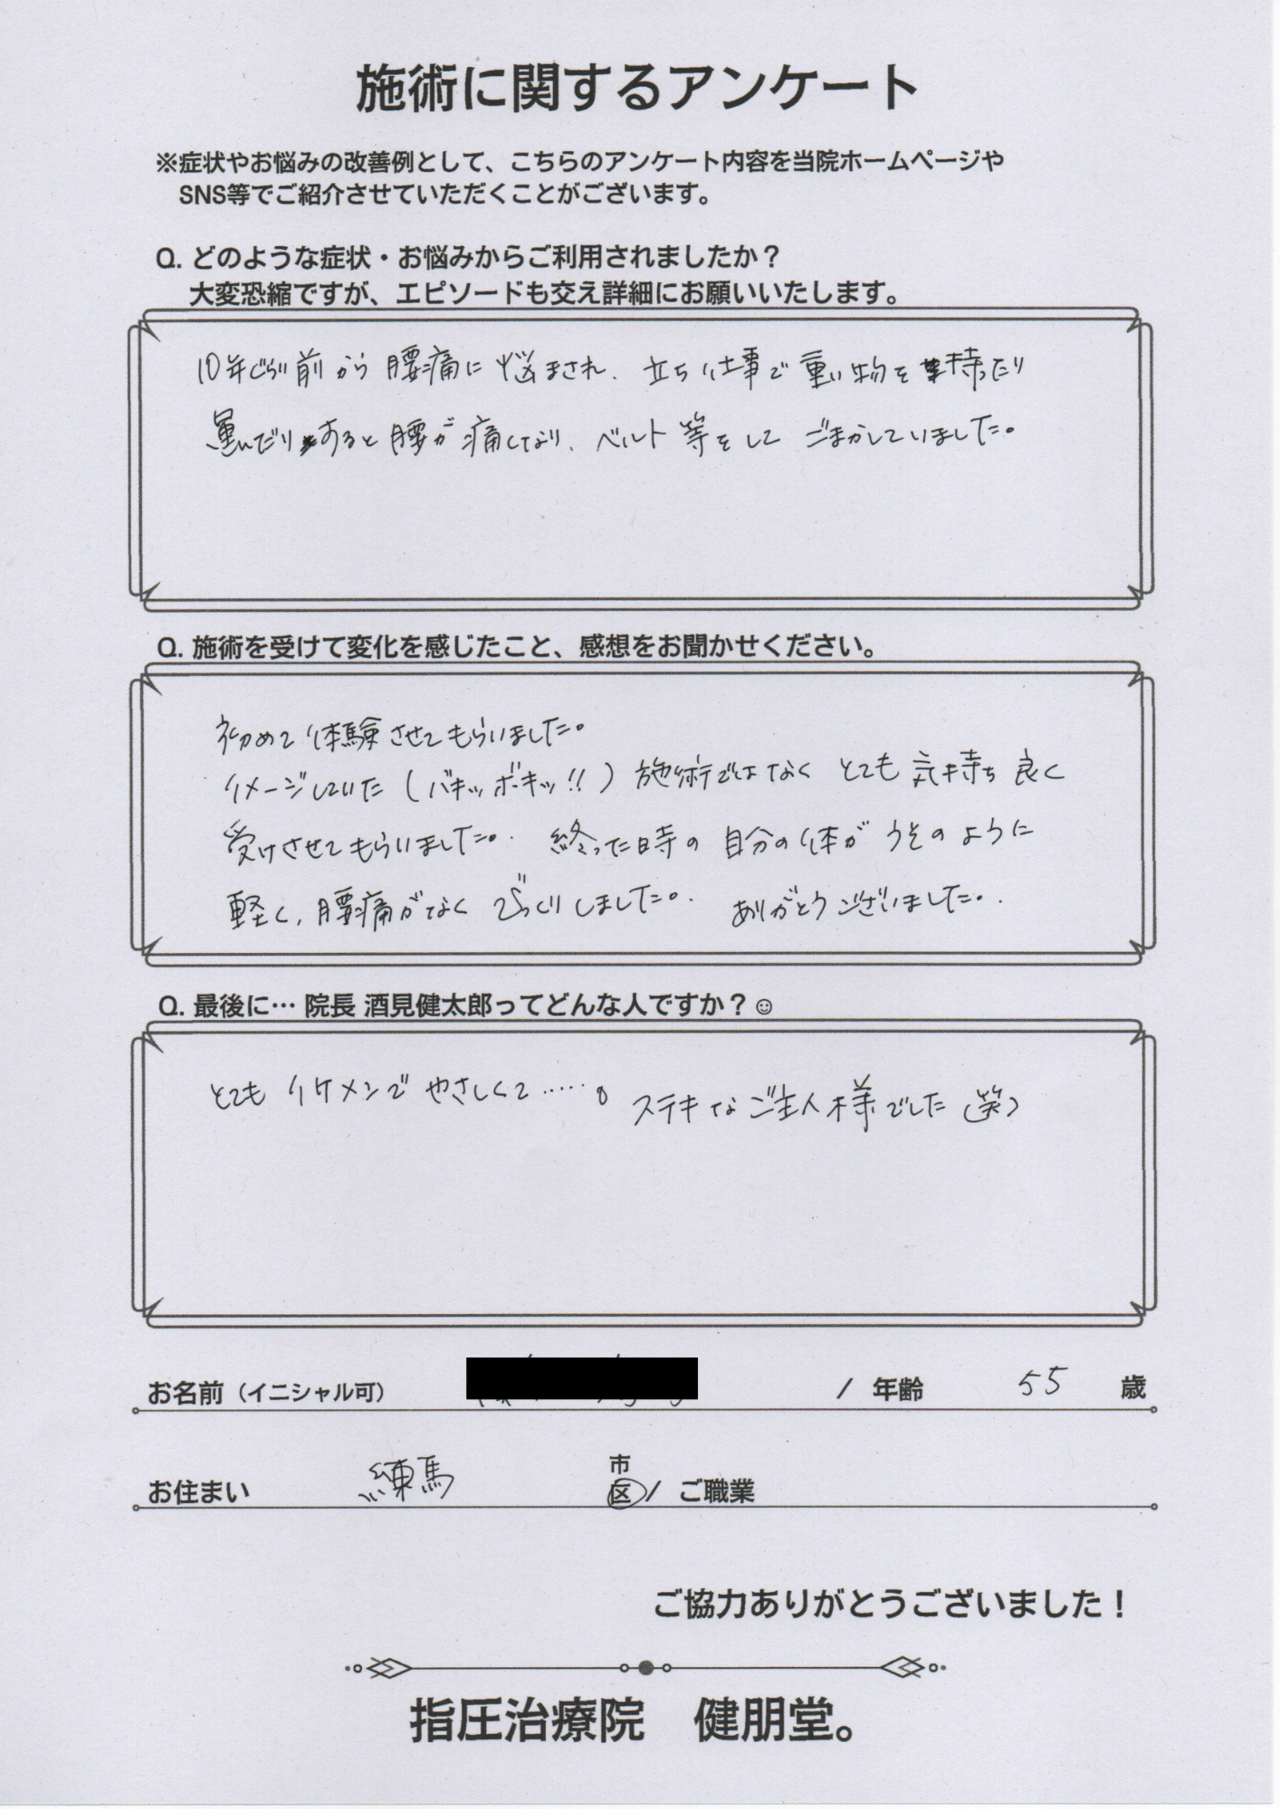 施術に関するアンケート
※症状やお悩みの改善例として、こちらのアンケート内容を当院ホームページや
SNS等でご紹介させていただくことがございます。
Q. どのような症状・お悩みからご利用されましたか？
大変恐縮ですが、エピソードも交え詳細にお願いいたします。
10年ぐらい前から腰痛に悩まされ、立ち仕事で重い物を持ったり
運んだりすると腰が痛くなり、ベルト等をしてごまかしていました。
Q. 施術を受けて変化を感じたこと、感想をお聞かせください。
初めて体験させてもらいました。
イメージしていた（バキッボキッ!!）施術ではなくとても気持ち良く
受けさせてもらいました。終った時の自分の体がうそのように
軽く、腰痛がなくびっくりしました。ありがとうございました。
Q. 最後に… 院長 酒見健太郎ってどんな人ですか？☺
とてもイケメンでやさしくて……。ステキなご主人様でした（笑）
お名前（イニシャル可） / 年齢 55 歳
市
お住まい 練馬 区 / ご職業
ご協力ありがとうございました！
指圧治療院 健朋堂。